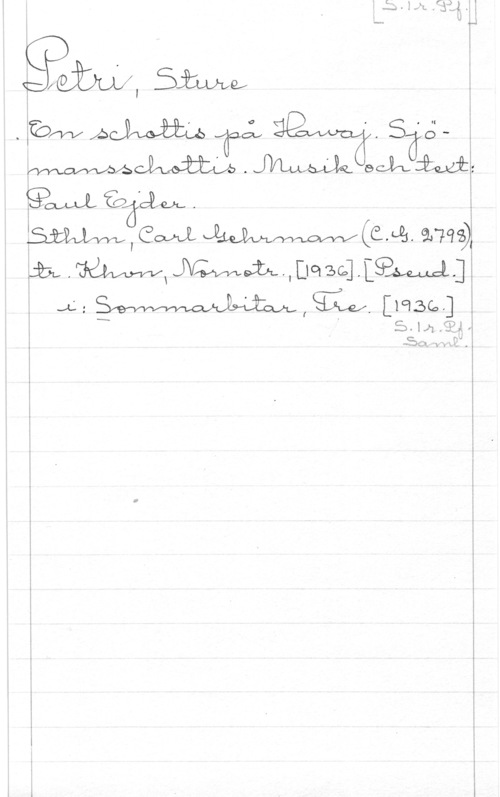 [S. 1 r. Pf.]
Petri, Sture
En schottis på Hawaj. Sjö-
mansschottis. Musik och text:
Paul Ejder.
Sthlm, Carl Gehrman (C. G. 2798),
tr. Khvn, Nornotr., [1936]. [Pseud.]
i: Sommarbitar, Tre. [1936.]
S. 1 r. Pf.
Saml.